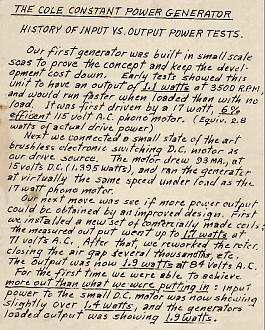 THE COLE CONSTANT POWER GENERATOR
HISTORY OF INPUT VS. OUTPUT POWER TESTS.
Our first generator was built in small scale
so as to prove the concept and keep the devel-
opment cost down. Early tests showed this
unit to have an output of 1.1 watts at 3500 R.P.M.,
and would run faster when loaded than with no
load. It was first driven by a 17 watt, 6%
efficent 115 volt A.C. phono motor. (Equiv. 2.8
watts of actual drive power)
Next we connected a small state of the art
brushless electronic switching D.C. motor as
our drive source. The motor drew 93 MA, at
15 volts D.C. (1.395 watts), and ran the generator
at virtually the same speed under load as the
17 watt phono motor.
Our next move was see if more power output
could be obtained by an improved design. First
we installed a new set of comerially made coils:
the measured out put went up to watts at
71 volts A.C. After that, we reworked the rotor,
closing the air gap several thousandths, etc.
The output was now 1.9 watts at 84 volts A.C.
For the first time we were able to achieve
more out than what we were putting in: input
power to the small D.C. motor was now showing
slightly over 1.4 watts, and the generators
loaded output was showing 1.9 watts.